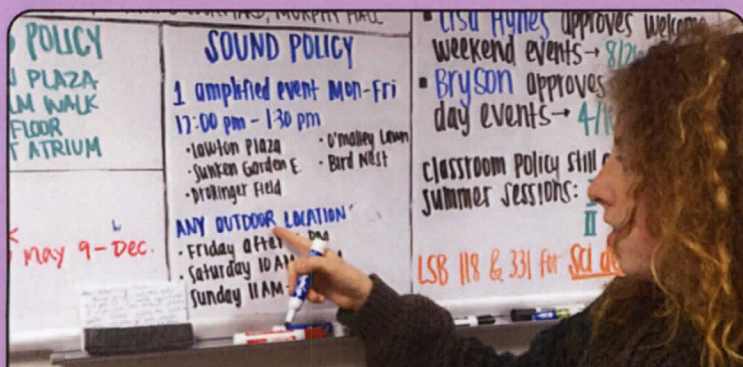 MURPHY HALL
POLICY
PLAZA
LM WALK
FLOOR
T ATRIUM
may 9-Dec.
SOUND POLICY
1 amplified event Mon-Fri
12:00 pm - 1:30 pm
• Lawton Plaza
• Sunken Garden E.
• Drollinger Field
• O'malley Lawn
• Bird Nest
ANY OUTDOOR LOCATION
• Friday after
• Saturday 10 AM
Sunday 11 AM-
• Lisa Hynes approves welcome
weekend events→ 8/26
• Bryson approves
day events→ 4/1
classroom policy still
summer sessions:
II
LSB 118 & 331 for Sci